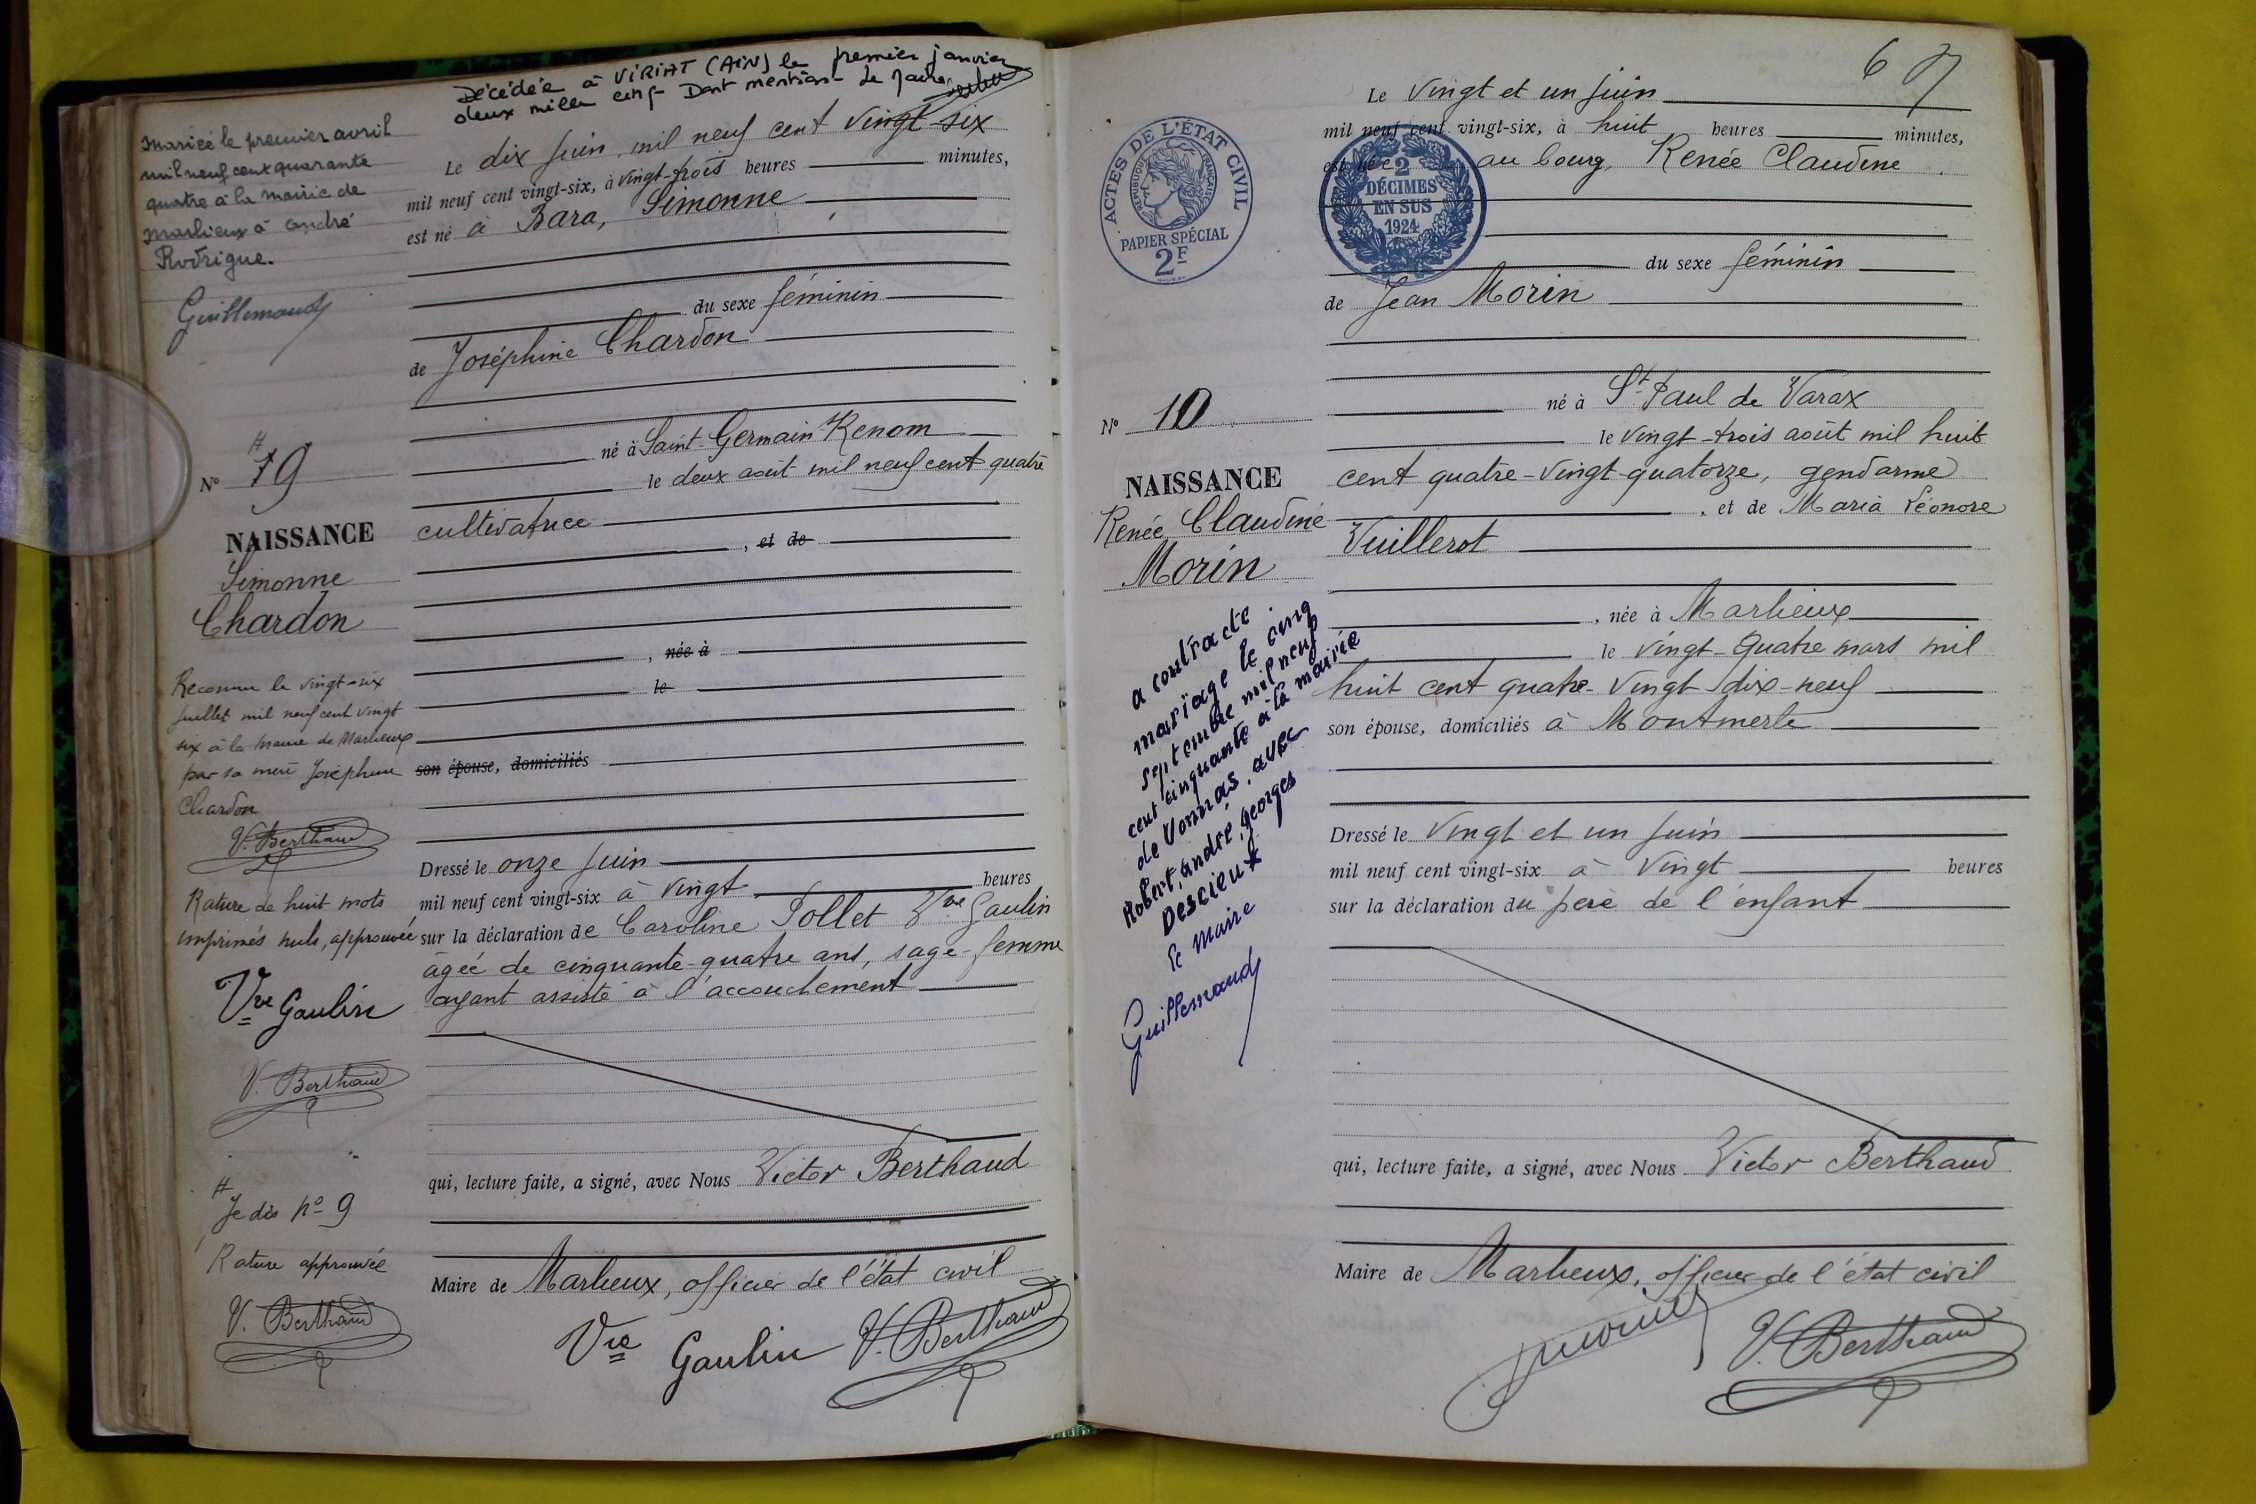 Décédée à VIRIAT (AIN) le premier janvier
deux mille cinq Dont mention Le Maire
Mariée le premier avril
mil neuf cent quarante
quatre à la mairie de
Marlieux à André
Rodrigue.
Guillemaud
Le dix juin mil neuf cent vingt-six
mil neuf cent vingt-six, à vingt-trois heures minutes,
est né à Bara, Simonne
du sexe féminin
de Joséphine Chardon
né à Saint-Germain-Renom
le deux août mil neuf cent quatre
cultivatrice
, et de
, née à
le
son épouse, domiciliés
#
N° 19
NAISSANCE
Simonne
Chardon
Reconnue le vingt-six
juillet mil neuf cent vingt
six à la mairie de Marlieux
par sa mère Joséphine
Chardon
V. Berthaud
Rature de huit mots
imprimés nuls, approuvée
Vve Gaulin
V. Berthaud
#
Je dis no 9
Rature approuvée
V. Berthaud
Dressé le onze juin
mil neuf cent vingt-six à vingt heures
sur la déclaration de Caroline Pollet Vve Gaulin
âgée de cinquante-quatre ans, sage-femme
ayant assisté à l'accouchement
qui, lecture faite, a signé, avec Nous Victor Berthaud
Maire de Marlieux, officier de l'état civil
Vve Gaulin V. Berthaud
6
Le vingt et un juin
mil neuf cent vingt-six, à huit heures minutes,
est née au bourg, Renée Claudine
du sexe féminin
de Jean Morin
né à St Paul de Varax
le vingt-trois août mil huit
cent quatre-vingt-quatorze, gendarme
, et de Maria Léonore
Vuillerot
, née à Marlieux
le vingt-quatre mars mil
huit cent quatre-vingt-dix-neuf
son épouse, domiciliés à Montmerle
ACTES DE L'ÉTAT CIVIL
RÉPUBLIQUE FRANÇAISE
PAPIER SPÉCIAL
2F
2
DÉCIMES
EN SUS
1924
N° 10
NAISSANCE
Renée Claudine
Morin
a contracté
mariage le cinq
septembre mil neuf
cent cinquante à la mairie
de Vonnas, avec
Robert, André, Georges
Descieux
Le Maire
Guillemaud
Dressé le vingt et un juin
mil neuf cent vingt-six à vingt heures
sur la déclaration du père de l'enfant
qui, lecture faite, a signé, avec Nous Victor Berthaud
Maire de Marlieux, officier de l'état civil
Morin V. Berthaud